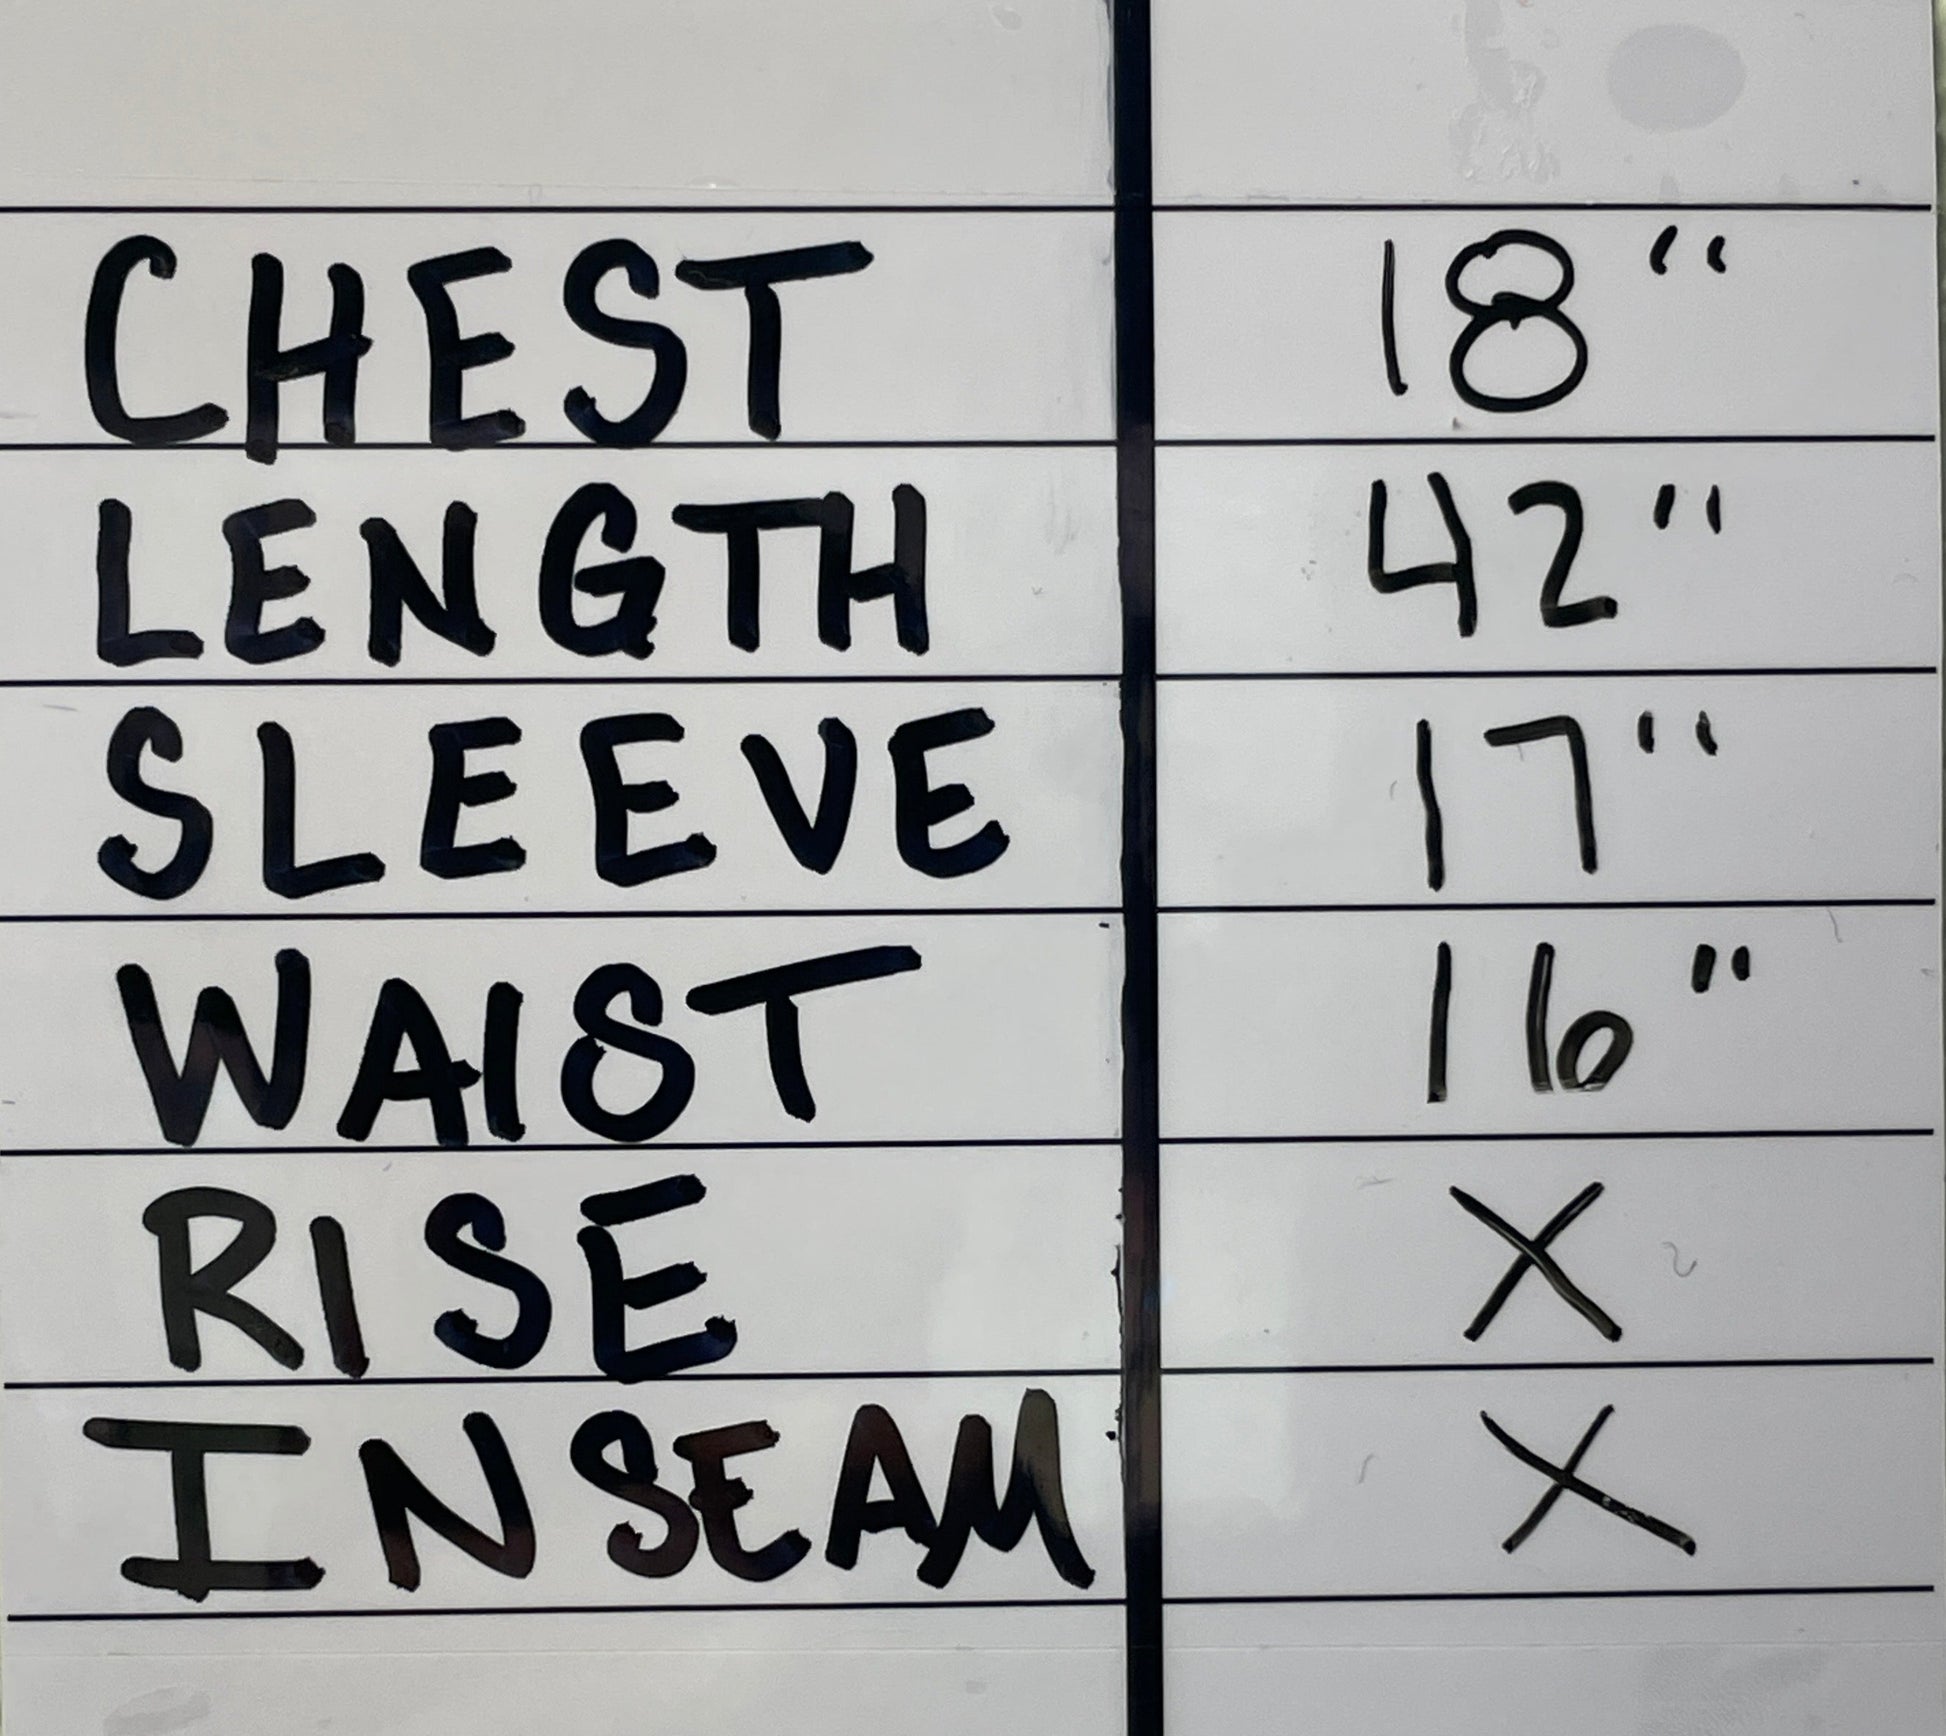 CHEST 18"
LENGTH 42"
SLEEVE 17"
WAIST 16"
RISE X
INSEAM X